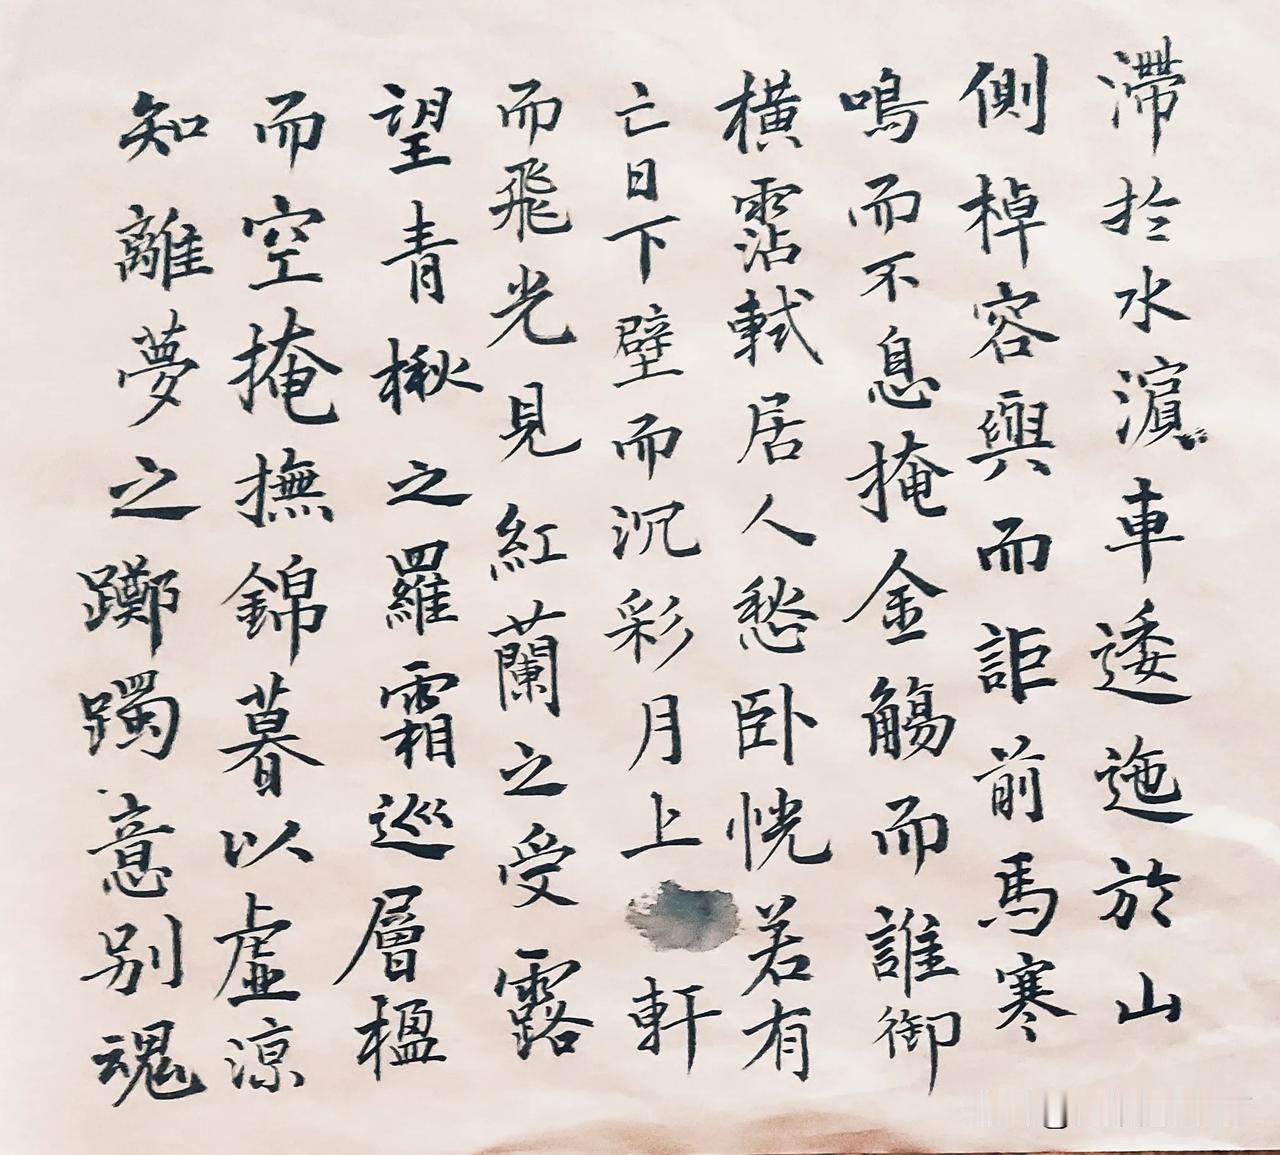 滯扵水濵車逶迤於山
側棹容與而詎前馬寒
鳴而不息掩金觴而誰御
横霑軾居人愁卧恍若有
亡日下壁而沉彩月上軒
而飛光見紅蘭之受露
望青楸之羅霜巡層楹
而空掩撫錦暮以虚涼
知離夢之躑躅意别魂